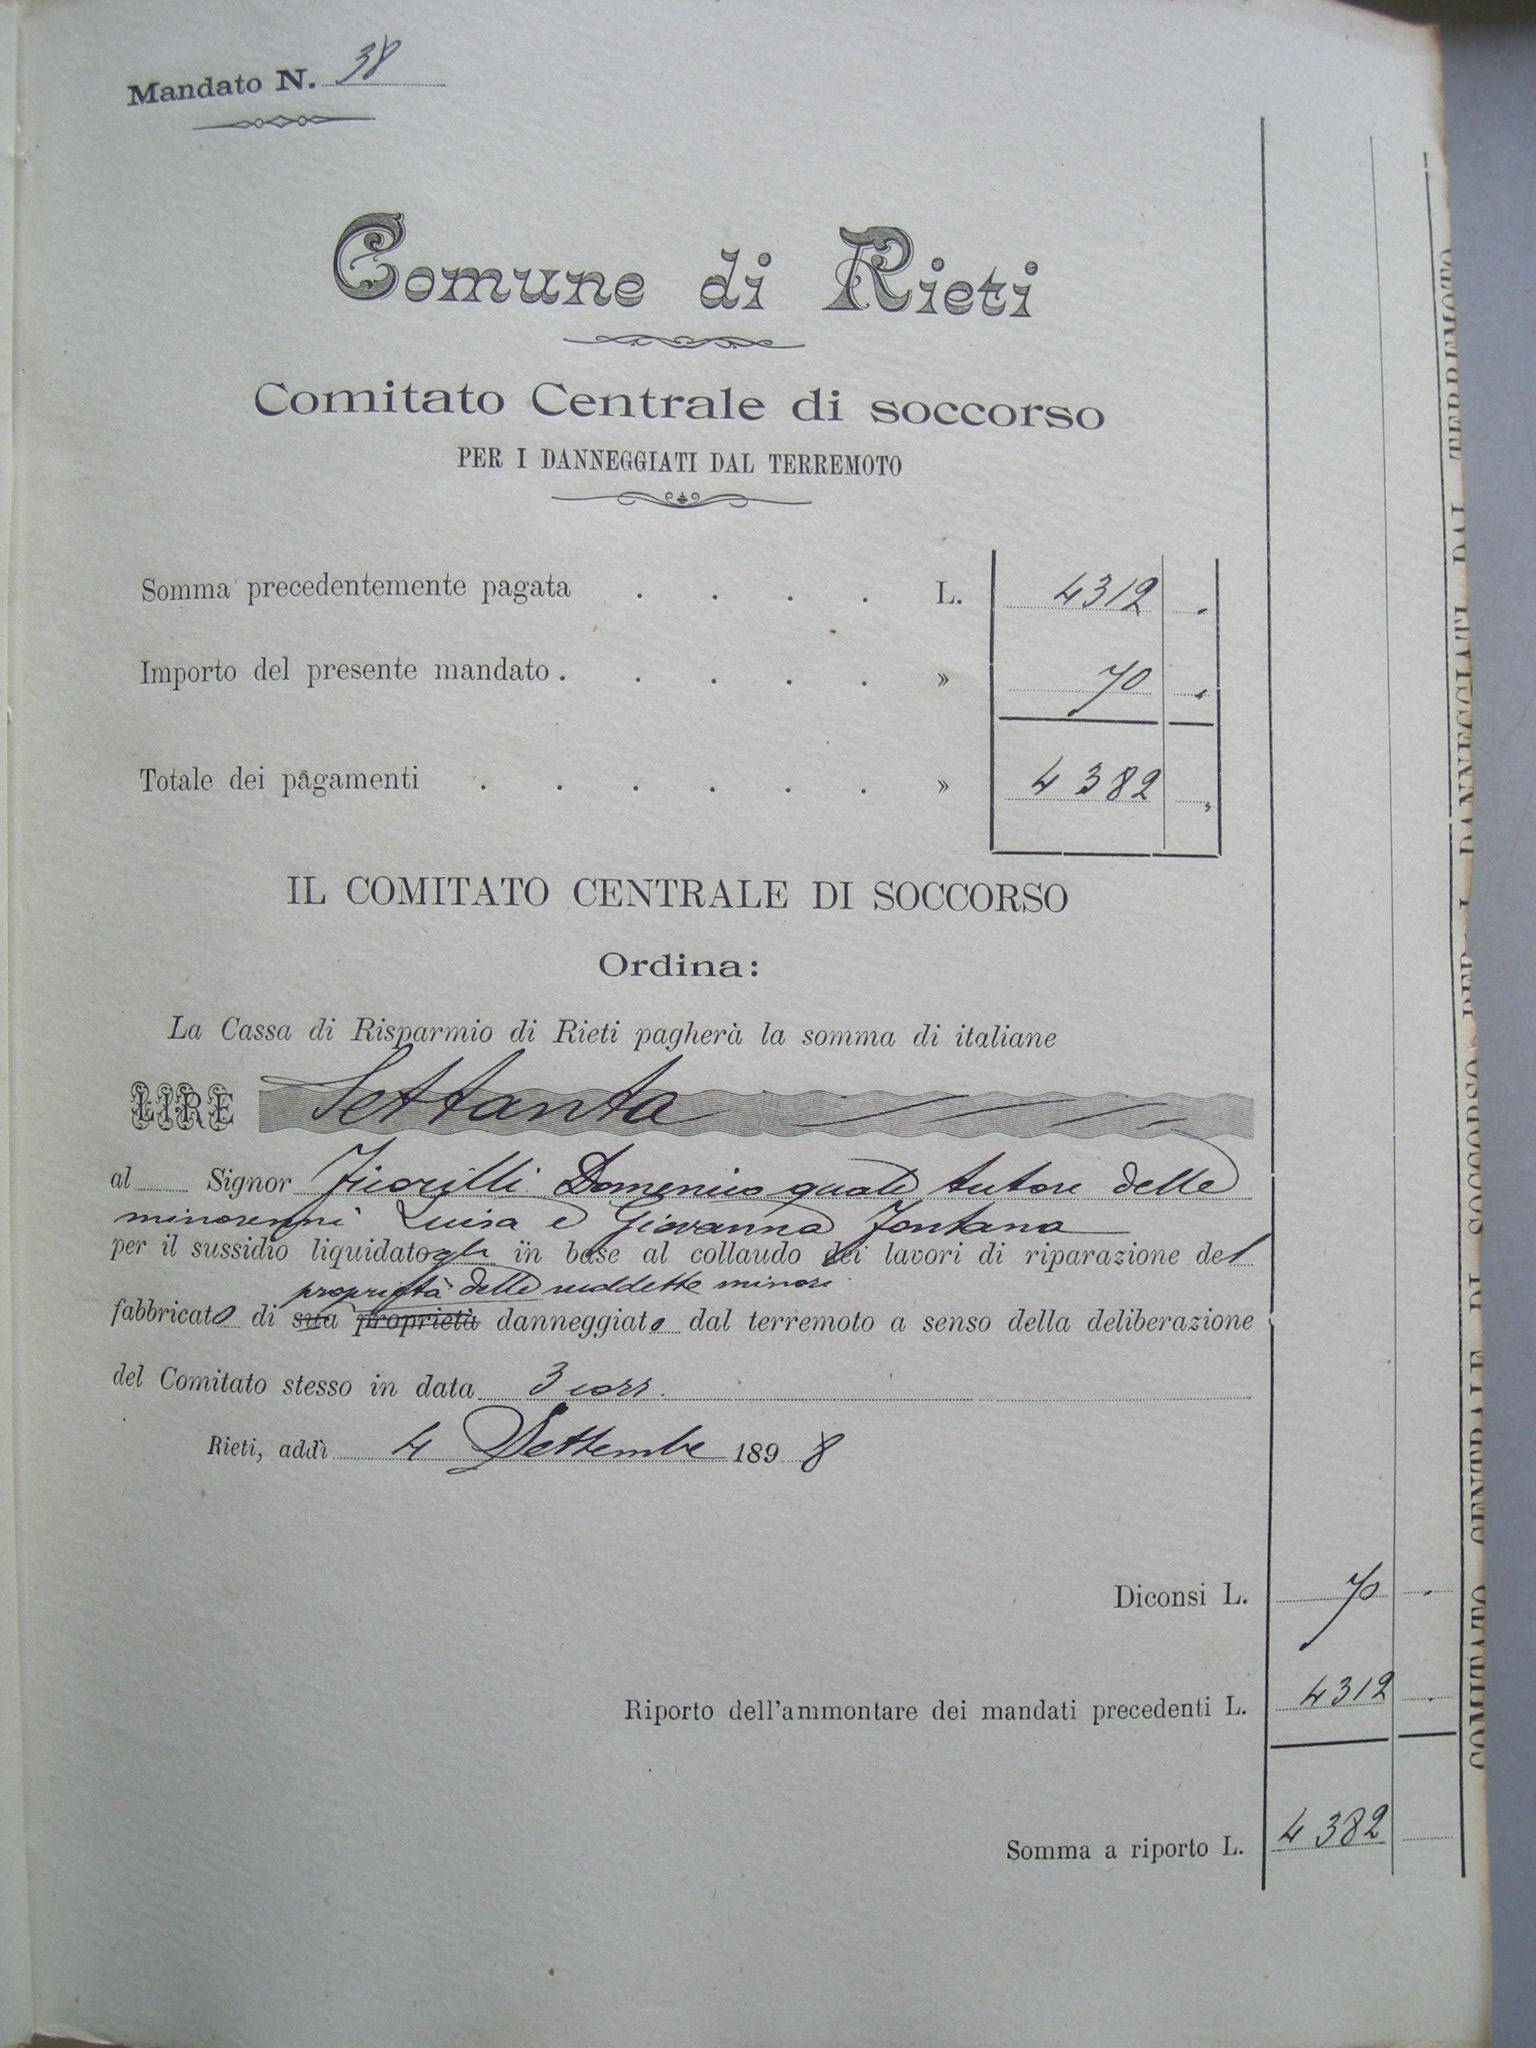 Mandato N. 38
Comune di Rieti
Comitato Centrale di soccorso
PER I DANNEGGIATI DAL TERREMOTO
Somma precedentemente pagata . . . . L. 4312 .
Importo del presente mandato . . . . . » 70 .
Totale dei pagamenti . . . . . . » 4382 ,
IL COMITATO CENTRALE DI SOCCORSO
Ordina:
La Cassa di Risparmio di Rieti pagherà la somma di italiane
LIRE Settanta
al Signor Fiorilli Domenico quale tutore delle
minorenni Luisa e Giovanna Fontana
per il sussidio liquidatogli in base al collaudo dei lavori di riparazione del
proprietà delle suddette minori
fabbricato di sua proprietà danneggiato dal terremoto a senso della deliberazione
del Comitato stesso in data 3 corr.
Rieti, addì 4 Settembre 1898
Diconsi L. 70 .
Riporto dell'ammontare dei mandati precedenti L. 4312 .
Somma a riporto L. 4382
COMITATO CENTRALE DI SOCCORSO PER I DANNEGGIATI DAL TERREMOTO